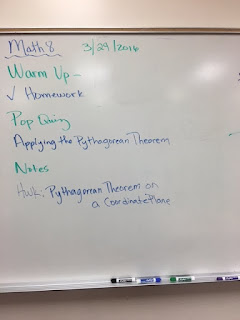 Math 8 3/29/2016
Warm Up -
✓ Homework
Pop Quiz
Applying the Pythagorean Theorem
Notes
Hwk: Pythagorean Theorem on
a Coordinate Plane